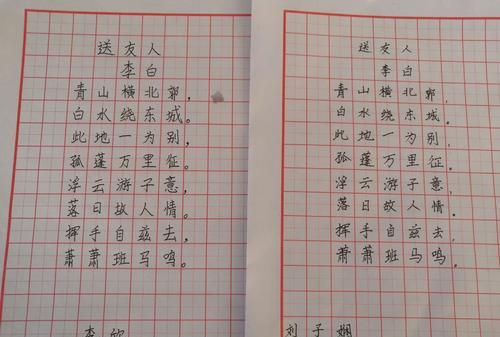 送友人
李白
青山横北郭，
白水绕东城。
此地一为别，
孤蓬万里征。
浮云游子意，
落日故人情。
挥手自兹去，
萧萧班马鸣。
李欣
送友人
李白
青山横北郭，
白水绕东城。
此地一为别，
孤蓬万里征。
浮云游子意，
落日故人情。
挥手自兹去，
萧萧班马鸣。
刘子娴